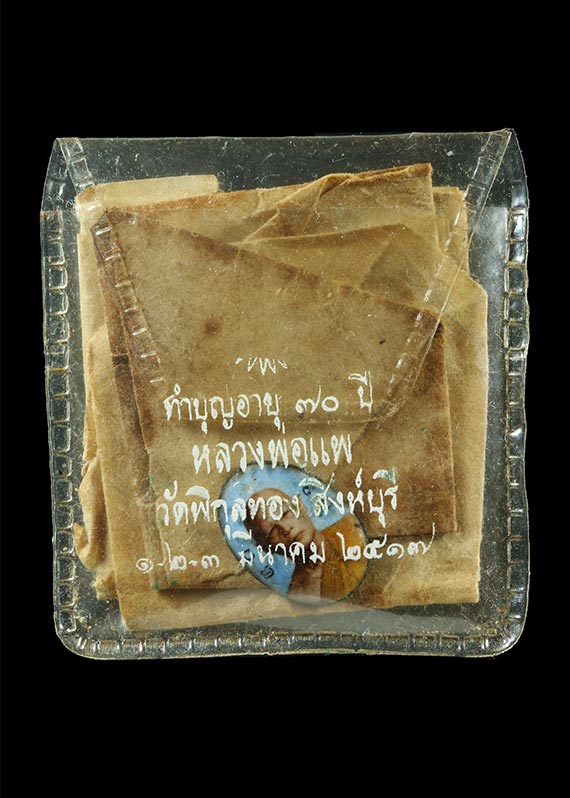 ทำบุญอายุ ๗๐ ปี
หลวงพ่อแพ
วัดพิกุลทอง สิงห์บุรี
๑-๒-๓ มีนาคม ๒๕๑๗